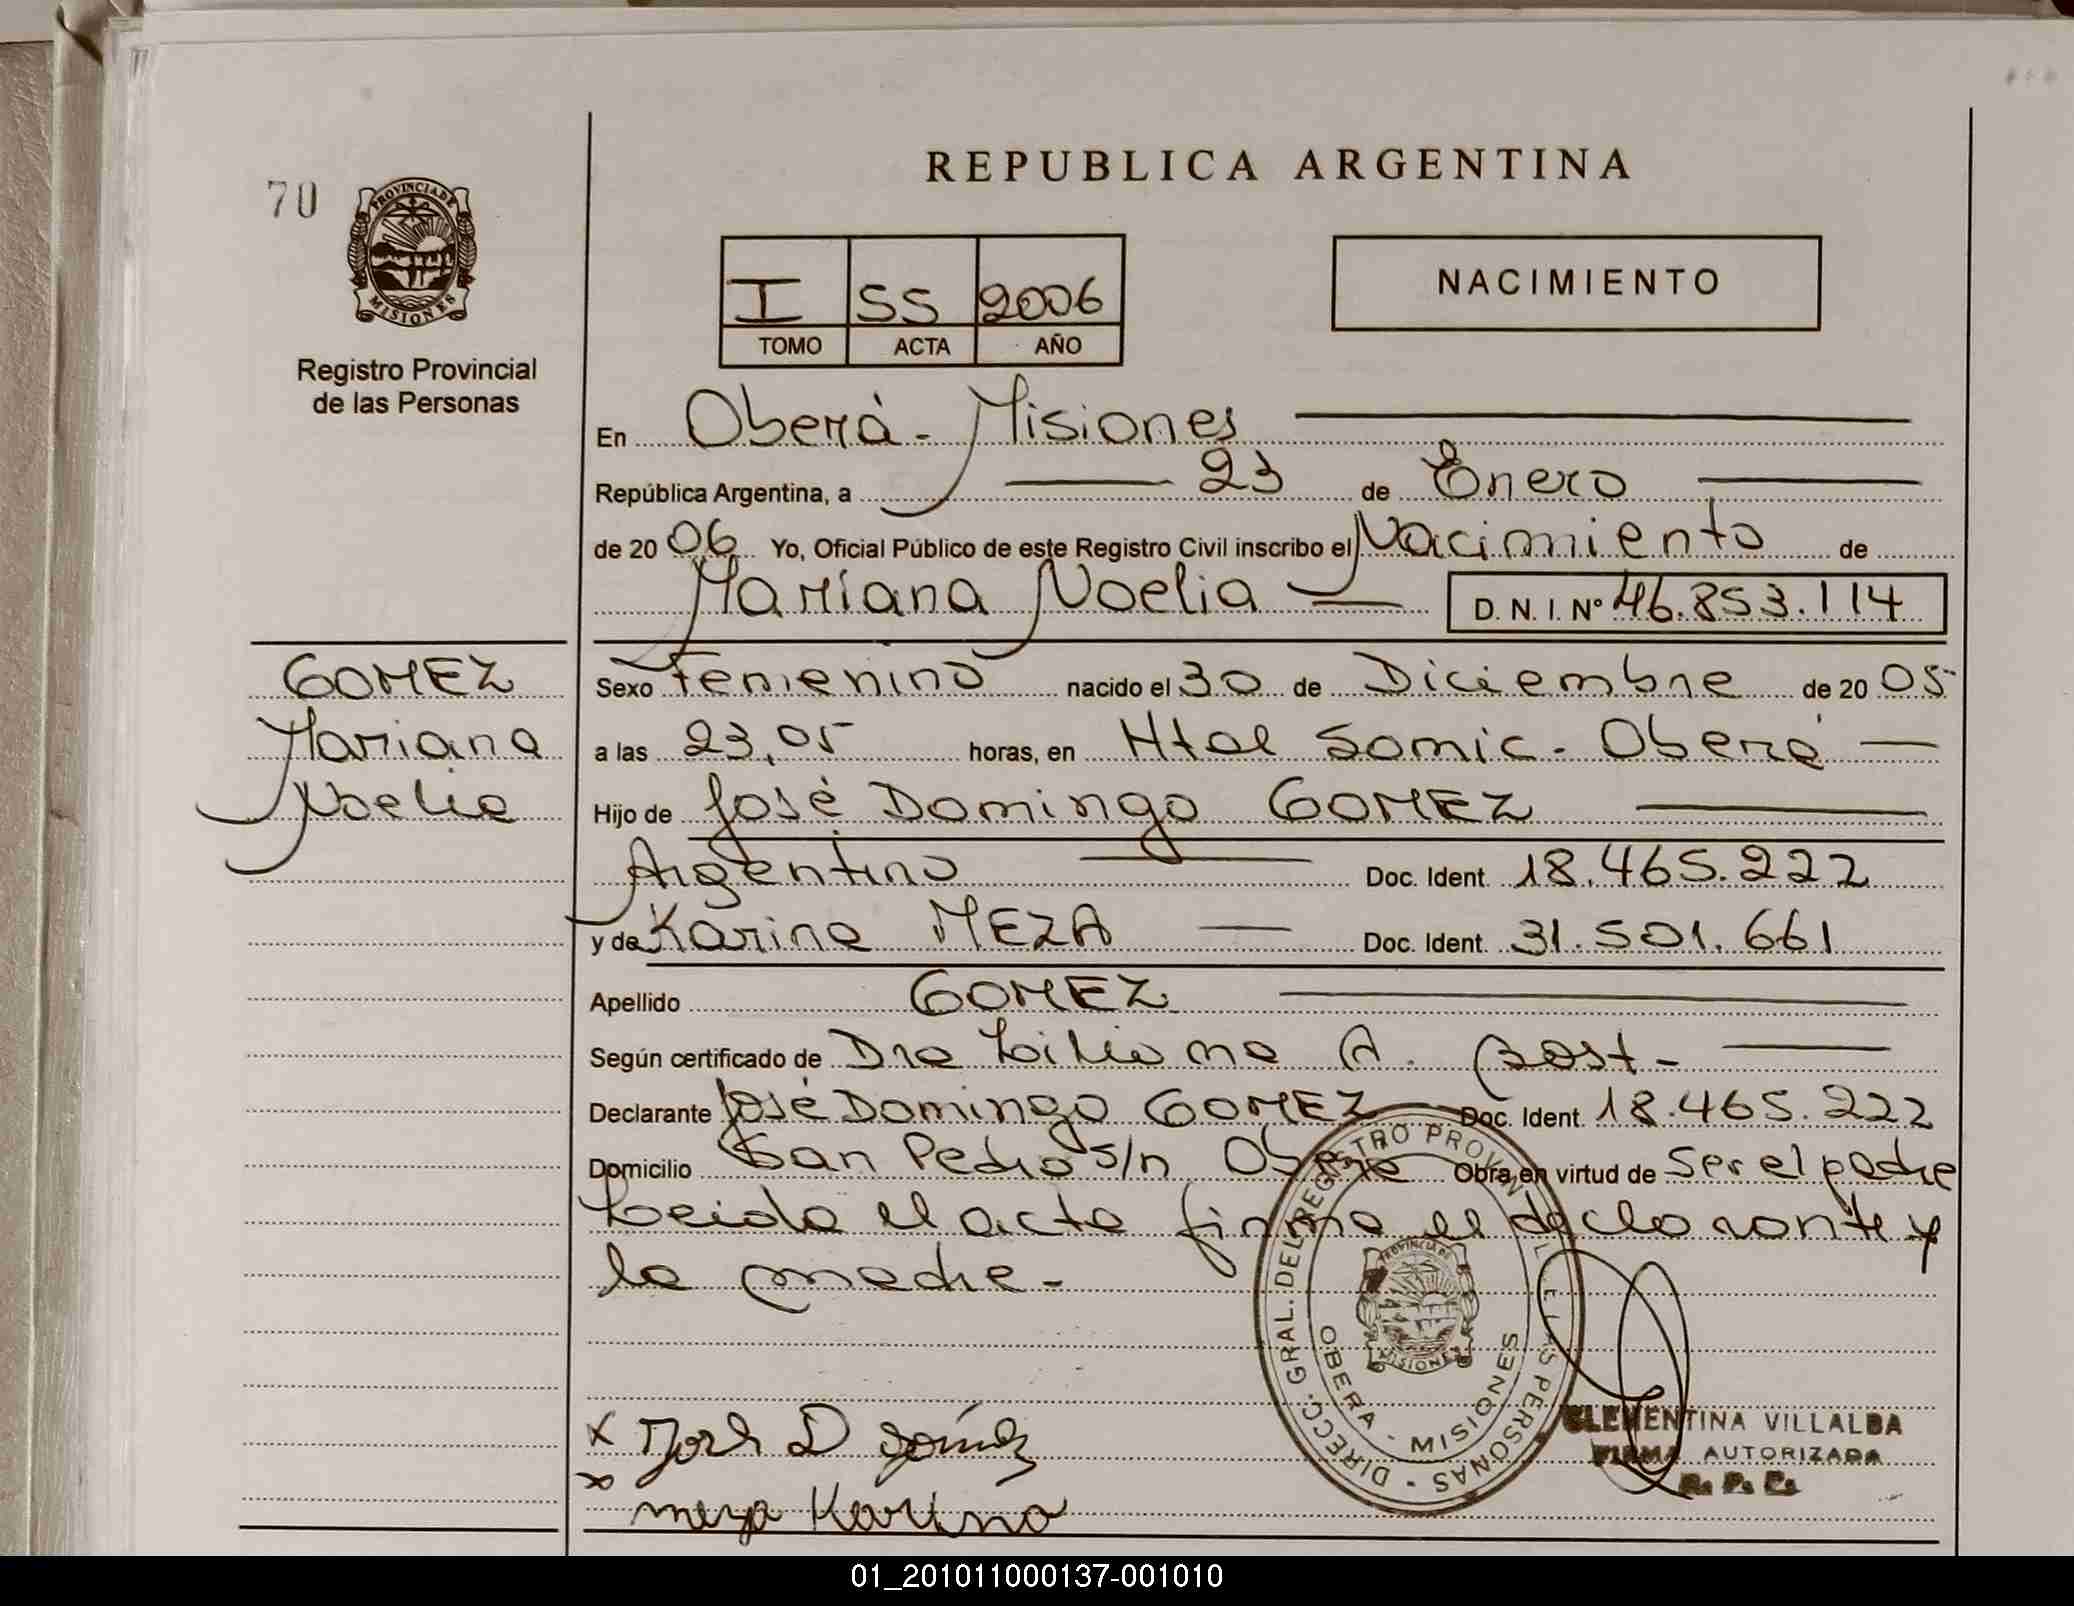 REPUBLICA ARGENTINA
70
PROVINCIA DE
MISIONES
Registro Provincial
de las Personas
NACIMIENTO
I 55 2006
TOMO ACTA AÑO
En Oberá - Misiones
República Argentina, a 23 de Enero
de 2006 Yo, Oficial Público de este Registro Civil inscribo el Nacimiento de
Mariana Noelia D. N. I. Nº 46.853.114
GOMEZ
Mariana
Noelia
Sexo Femenino nacido el 30 de Diciembre de 2005
a las 23,05 horas, en Htal Samic - Oberá
Hijo de José Domingo GOMEZ
Argentino Doc. Ident. 18.465.222
y de Karina MEZA Doc. Ident. 31.501.661
Apellido GOMEZ
Según certificado de Dra Liliana A. Post -
Declarante José Domingo GOMEZ Doc. Ident. 18.465.222
Domicilio San Pedro s/n Oberá Obra en virtud de ser el padre
Leida el acta firma el declarante y
la madre -
DIRECC. GRAL. DEL REGISTRO PROVINCIAL DE LAS PERSONAS
PROVINCIA DE
MISIONES
OBERA - MISIONES
x José D Gómez
x meza Karina
CLEMENTINA VILLALBA
FIRMA AUTORIZADA
R. P. P.
01_201011000137-001010